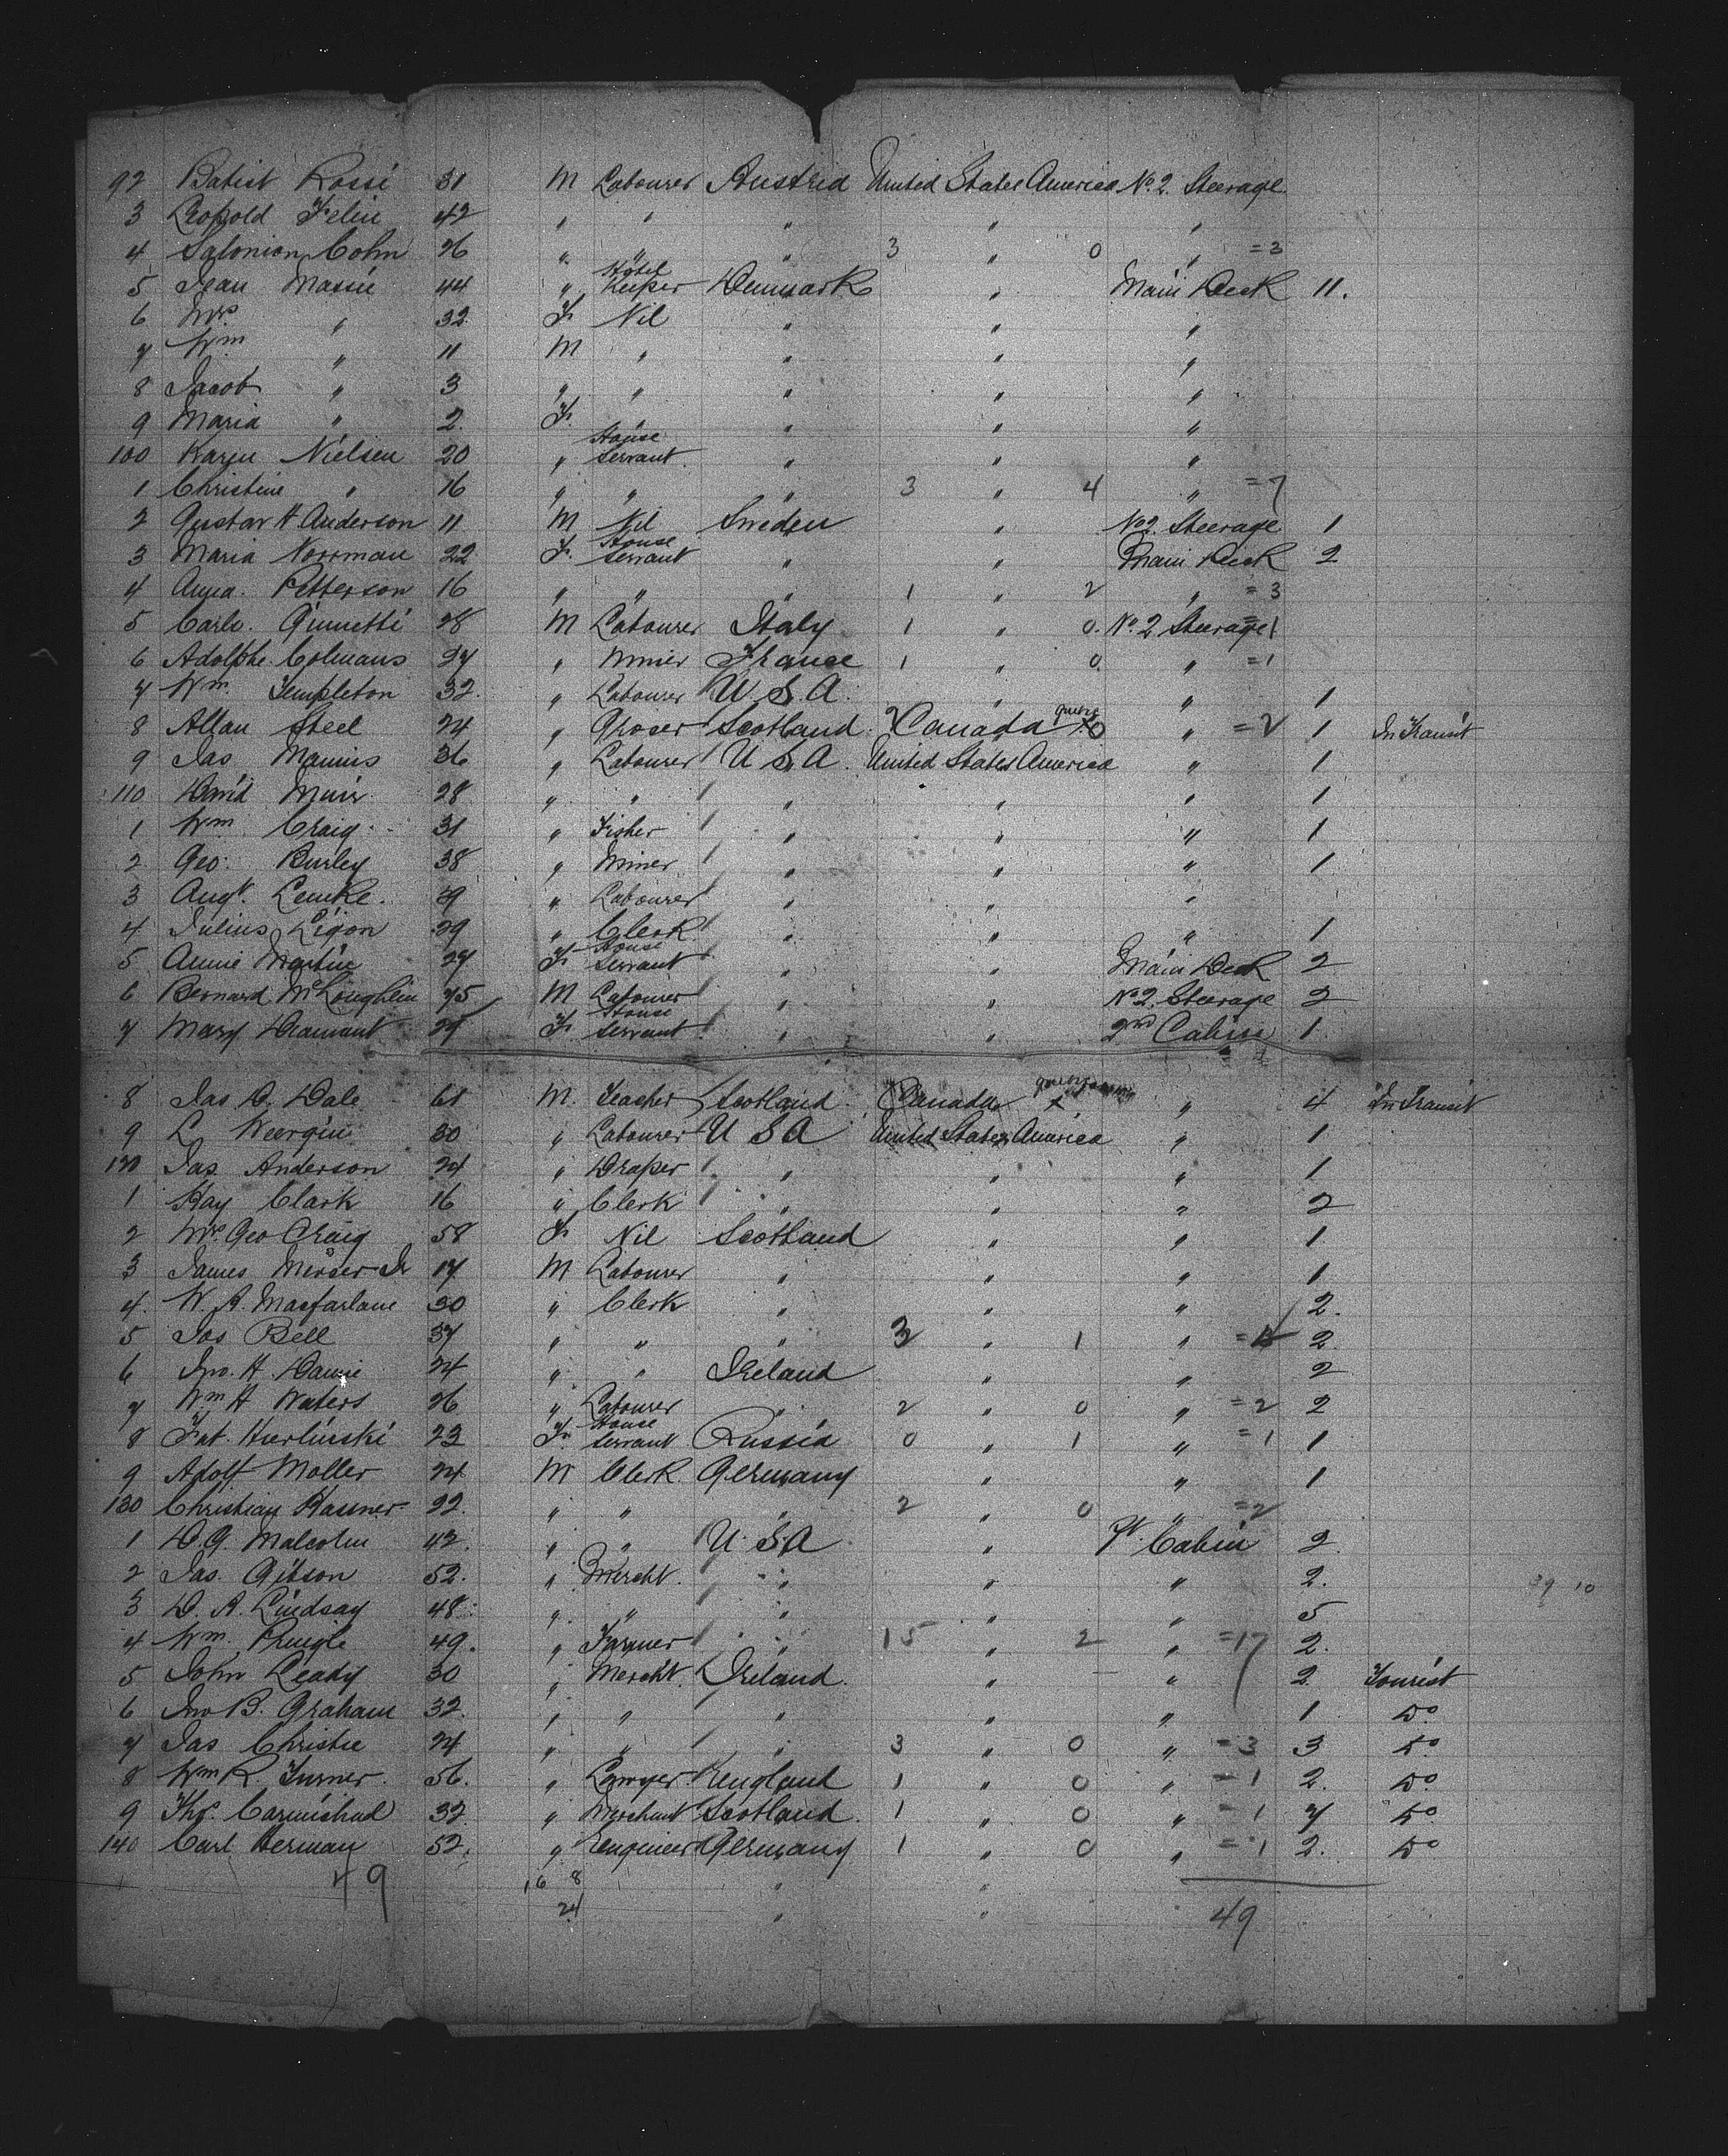 92 Batist Rossi 31 M Labourer Austria United States America No. 2 Steerage
3 Leopold Felin 42 " " " " "
4 Salomon Cohn 26 " " " 3 " 0 " = 3
5 Jean Masin 44 " Hotel Keeper Denmark " Main Deck 11.
6 Mrs " 32 F. Nil " " "
7 Wm " 11 M " " " "
8 Jacob " 3 " " " " "
9 Maria " 2. F. " " " "
100 Karen Nielsen 20 " House Servant " " "
1 Christine " 16 " " " 3 " 4 " = 7
2 Gustav A Anderson 11 M Nil Sweden " No 2. Steerage 1
3 Maria Norrman 22 F. House Servant " " Main Deck 2
4 Anna. Petterson 16 " " " 1 " 2 " = 3
5 Carlo. 28 M Labourer Italy 1 " 0. No. 2 Steerage = 1
6 Adolphe. Colmans 27 " Miner France 1 " 0 " = 1
7 Wm. Templeton 32. " Labourer U. S. A. " " 1
8 Allan Steel 24 " Grocer Scotland 2 Canada x 0 " = 2 1 In Transit
9 Jas 36 " Labourer U S A. United States America " 1
110 David Muir 28 " " " " " 1
1 Wm. Craig 31 " Fisher " " " 1
2 Geo. Burley 38 " Miner " " " 1
3 Augt. Lemke. 29 " Labourer " " "
4 Julius Ligon 39 " Clerk " " " 1
5 Annie Martin 27 F House Servant " " Main Deck 2
6 Bernard McLoughlin 75 M Labourer " " No 2. Steerage 2
7 Mary Diamant 25 F. House Servant " " 2nd Cabin 1.
8 Jas D. Dale 61 M. Teacher Scotland. Canada x " 4 In Transit
9 L 30 " Labourer U S A United States America " 1
120 Jas Anderson 24 " Draper " " " 1
1 Hay Clark 16 " Clerk " " " 2
2 Mrs. Geo Craig 58 F Nil Scotland " " 1
3 James Mercer Jr 17 M Labourer " " " 1
4. W. A. Macfarlane 30 " Clerk " " " 2.
5 Jas Bell 37 " " " 3 " 1 " = 2.
6 Jno. H. 24 " " Ireland " " 2
7 Wm H Waters 26 " Labourer " 2 " 0 " = 2 2
8 23 F. House Servant Russia 0 " 1 " = 1 1
9 Adolf Moller 24 M Clerk. Germany " " 1
130 Christian Kassner 22. " " " 2 " 0 " = 2
1 D. G. Malcolm 42. " " U. S. A " 1st. Cabin 2.
2 Jas. Gibson 52. " Mercht. " " " 2. 39 10
3 D. A. Lindsay 48. " " " " " 5
4 Wm. Pringle 49. " Farmer " 15 " 2 " = 17 2.
5 John Leady 30 " Mercht. Ireland. " " 2. Tourist
6 Jno B. Graham 32. " " " " " 1 Do.
7 Jas Christie 24 " " " 3 " 0 " = 3 3 Do.
8 Wm R. Turner. 56. " Lawyer England 1 " 0 " = 1 2. Do
9 Thos. Carmichael 32. " Merchant Scotland. 1 " 0 " = 1 7 Do.
140 Carl Herman 52. " Engineer Germany 1 " 0 " = 1 2. Do
49 16 8 " "
24 " " 49